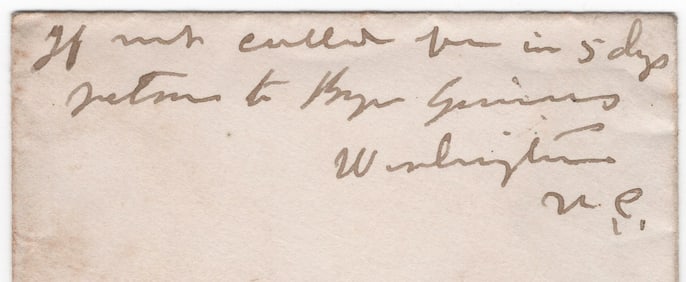 If not called for in 5 dys
return to Bryan Grimes
Washington
N.C.